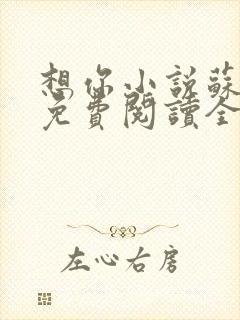 想你小説蘇
免費閱讀全
左心右房